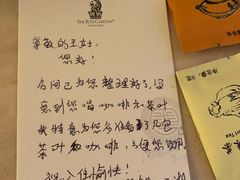 THE RITZ-CARLTON
尊敬的王女士:
您好!
房间已为您整理好了,留
意到您喝咖啡和茶叶
我特意为您多准备了几包
茶叶和咖啡,以便您饮用
祝入住愉快!